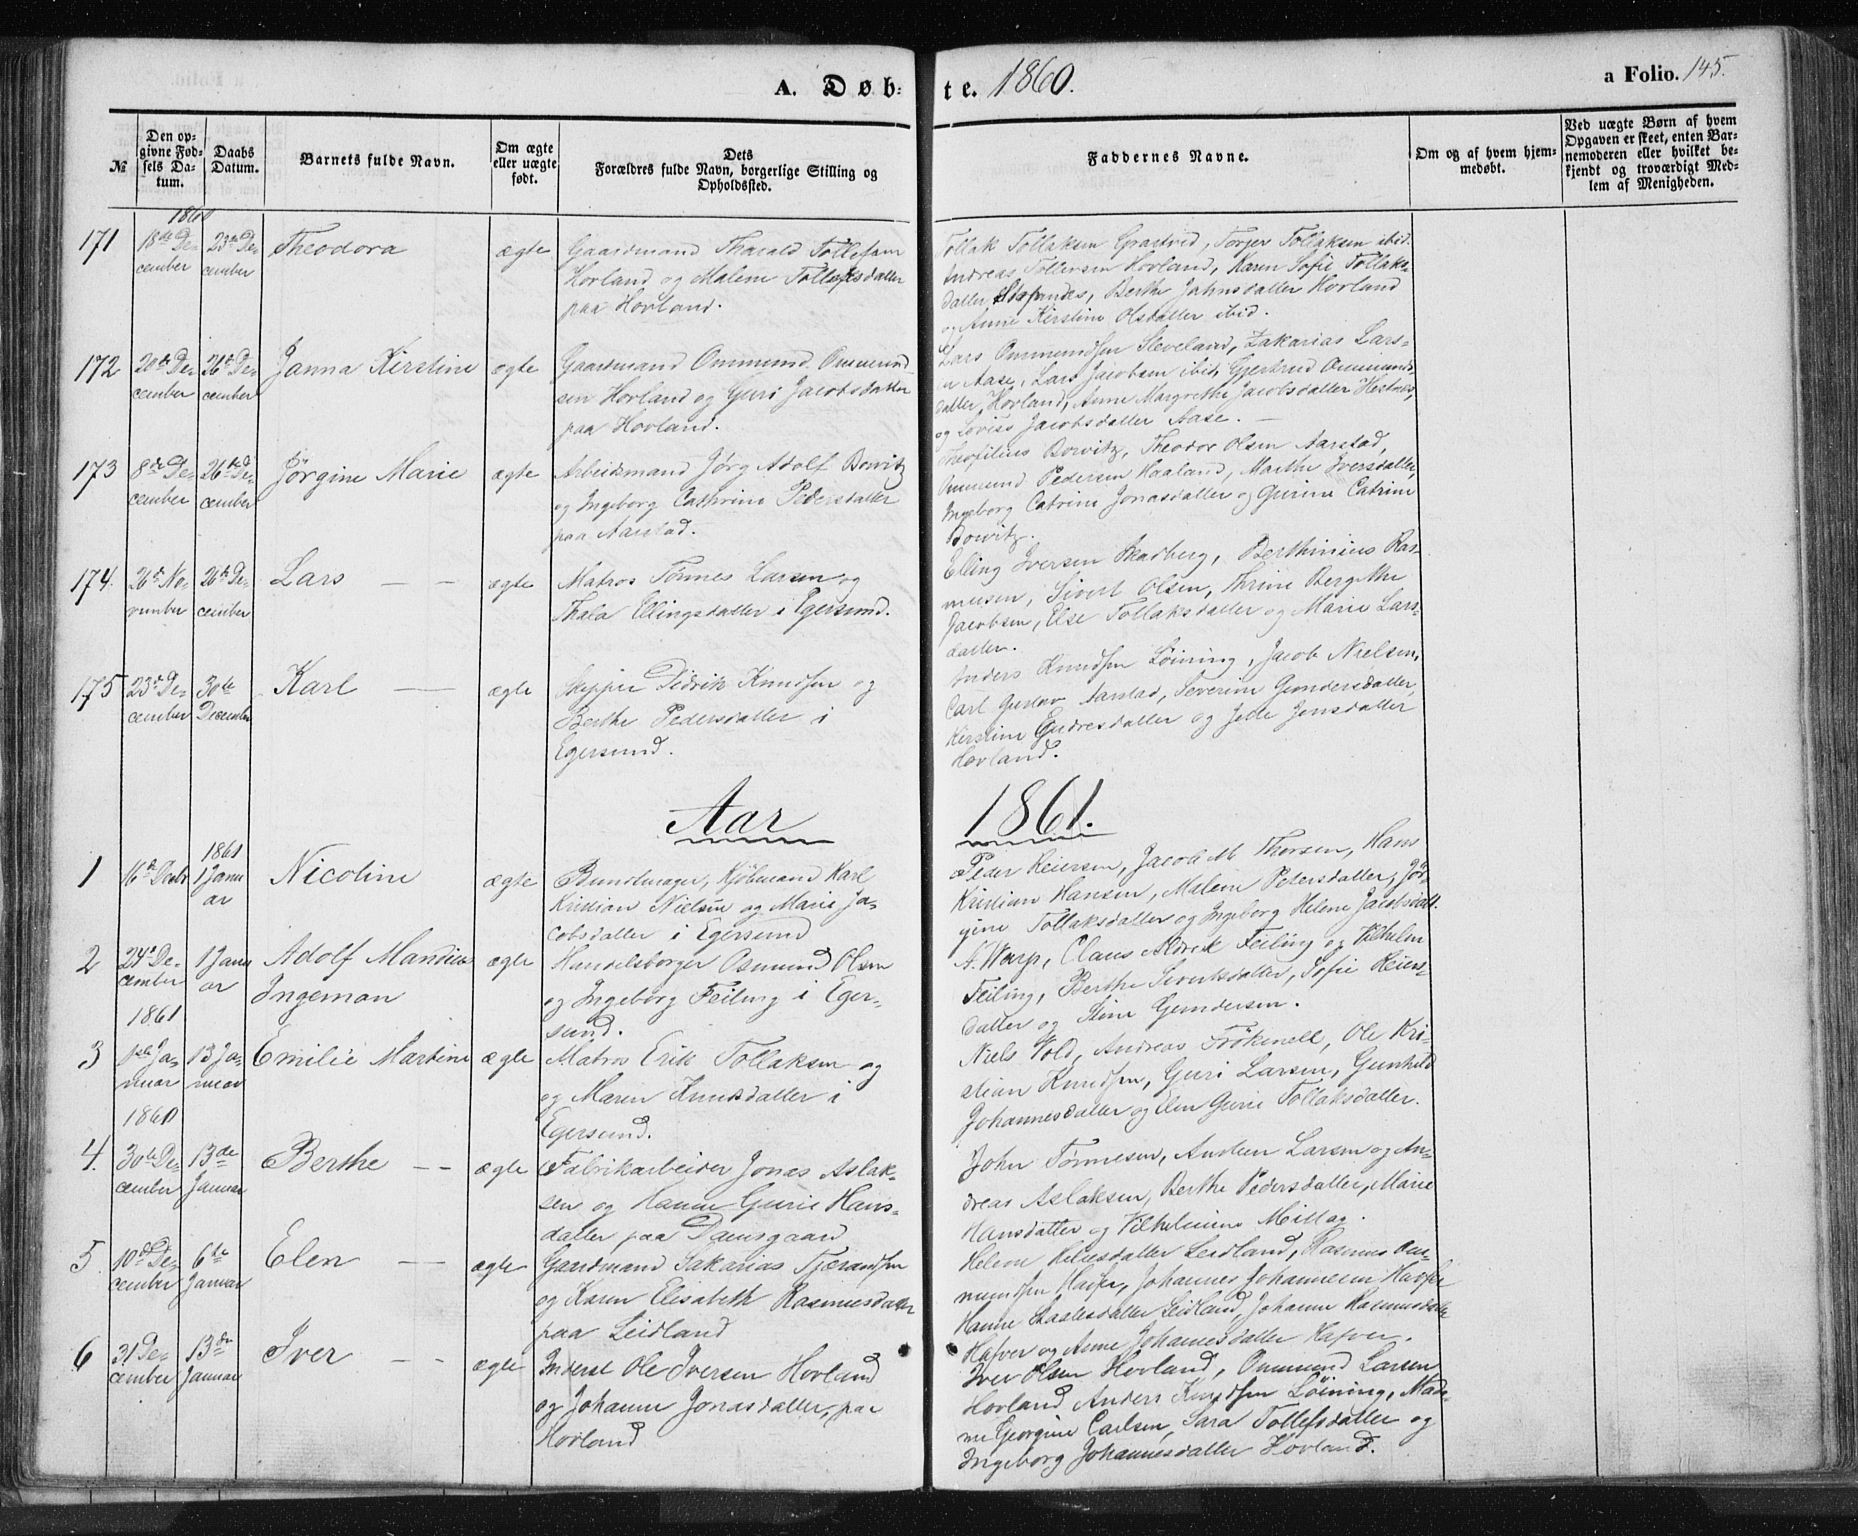 A. Døb-
te. 1860.
a Folio. 145.
№
Den op-
givne Fød-
sels Da-
tum.
Daabs
Datum.
Barnets fulde Navn.
Om ægte
eller uægte
født.
Dets
Forældres fulde Navn, borgerlige Stilling og
Opholdssted.
Faddernes Navne.
Om og af hvem hjem-
medøbt.
Ved uægte Børn af hvem
Opgaven er skeet, enten Bar-
nemoderen eller hvilket be-
kjendt og troværdigt Med-
lem af Menigheden.
1860
171
18de De-
cember
23de De-
cember
Theodora
ægte
Gaardmand Tharald Tollefsen
Hovland og Malene Tollaksdatter
paa Hovland.
Tollak Tollaksen Grastved, Torger Tollaksen ibid.
Andreas Tollefsen Hovland, Karen Sofie Tollaks-
datter, Berthe Jahnsdatter Hovland
og Anne Kirstine Olsdatter ibid.
172
20de De-
cember
26de De-
cember
Janna Kirstine
ægte
Gaardmand Ommund Ommund-
sen Hovland og Guri Jacobsdatter
paa Hovland.
Lars Ommundsen Sleveland, Zakarias Lars-
en Aase, Lars Jacobsen ibid, Gjertrud Ommunds-
datter Hovland, Anne Margrethe Jacobsdatter Hestnes,
og Lovise Jacobsdatter Aase. —
173
8de De-
cember
26de De-
cember
Jørgine Marie
ægte
Arbeidsmand Jørg. Adolf Bowitz
og Ingeborg Cathrine Pedersdatter
paa Aarstad.
Theofilius Bowitz, Theodor Olsen Aarstad,
Ommund Pedersen Haaland, Marthe Iversdatter,
Ingeborg Catrine Jonasdatter og Gurine Catrine
Bowitz.
174.
26de No-
vember
26de De-
cember
Lars — —
ægte
Matros Tønnes Larsen og
Thala Ellingsdatter i Egersund.
Elling Iversen Skadberg, Berthinius Ras-
musen, Sivert Olsen, Thrine Bergithe
Jacobsen, Else Tollaksdatter og Marie Lars-
datter.
175
23de De-
cember
30te
December
Karl —
ægte
Skipper Didrik Knudsen og
Berthe Pedersdatter i
Egersund.
Anders Knudsen Løining, Jacob Nielsen,
Carl Gustav Aarstad, Severine Gundersdatter,
Kirstine Endresdatter og Jede Jonsdatter
Hovland.
Aar
1861.
1861
1
16de Decbr
1 Janu
ar
Nicoline
ægte
Bundtmager, Kjøbmand Karl
Kristian Nielsen og Marie Ja-
cobsdatter i Egersund
Peder Reiersen, Jacob M Thorsen, Hans
Kristian Hansen, Malene Petersdatter, Jør-
gine Tollaksdatter og Ingeborg Helene Jacobsdatt.
2
24de De-
cember
1 Janu
ar
Adolf Mandius
Ingeman
ægte
Handelsborger Osmund Olsen
og Ingeborg Feiling i Eger-
sund.
A. Warp, Claus Aldrek Feiling og Vilhelm
Feiling, Berthe Sivertsdatter, Sofie Reiers-
datter og Stine Gundersen.
1861
3
1ste Ja-
nuar
13 Ja-
nuar
Emilie Martine
ægte
Matros Erik Tollaksen og
og Maren Knudsdatter i
Egersund.
Niels Vold, Andreas Frøkenell, Ole Kri-
stian Knudsen, Guri Larsen, Gunhild
Johannesdatter og Elen Gurie Tollaksdatter.
1860
4.
30te De-
cember
13de
Januar
Berthe — —
ægte
Fabrikarbeider Jonas Aslak-
sen og Hanne Gurie Hans-
datter paa Damsgaard
John Tønnesen, Austen Larsen og An-
dreas Aslaksen, Berthe Pedersdatter, Marie
Hansdatter og Vilhelmine Mittag.
5
10de De-
cember
6te
Januar
Elen —
ægte
Gaardmand Sakarias Tjerandsen
og Karen Elisabeth Rasmusdatter
paa Leidland
Helene Leidland, Rasmus Om-
mundsen, Johannes Johannesen Hafver
Hanne Leidland, Johanne Rasmusdatter
Hafver og Anne Johannesdatter Hafver.
6
31 De-
cember
13de
Januar
Iver — —
ægte
Inderst Ole Iversen Hovland
og Johanne Jonasdatter, paa
Hovland
Iver Olsen Hovland, Ommund Larsen
Hovland Anders Knudsen Løining, Mada-
me Georgine Carlsen, Sara Tollefsdatter og
Ingeborg Johannesdatter Hovland.